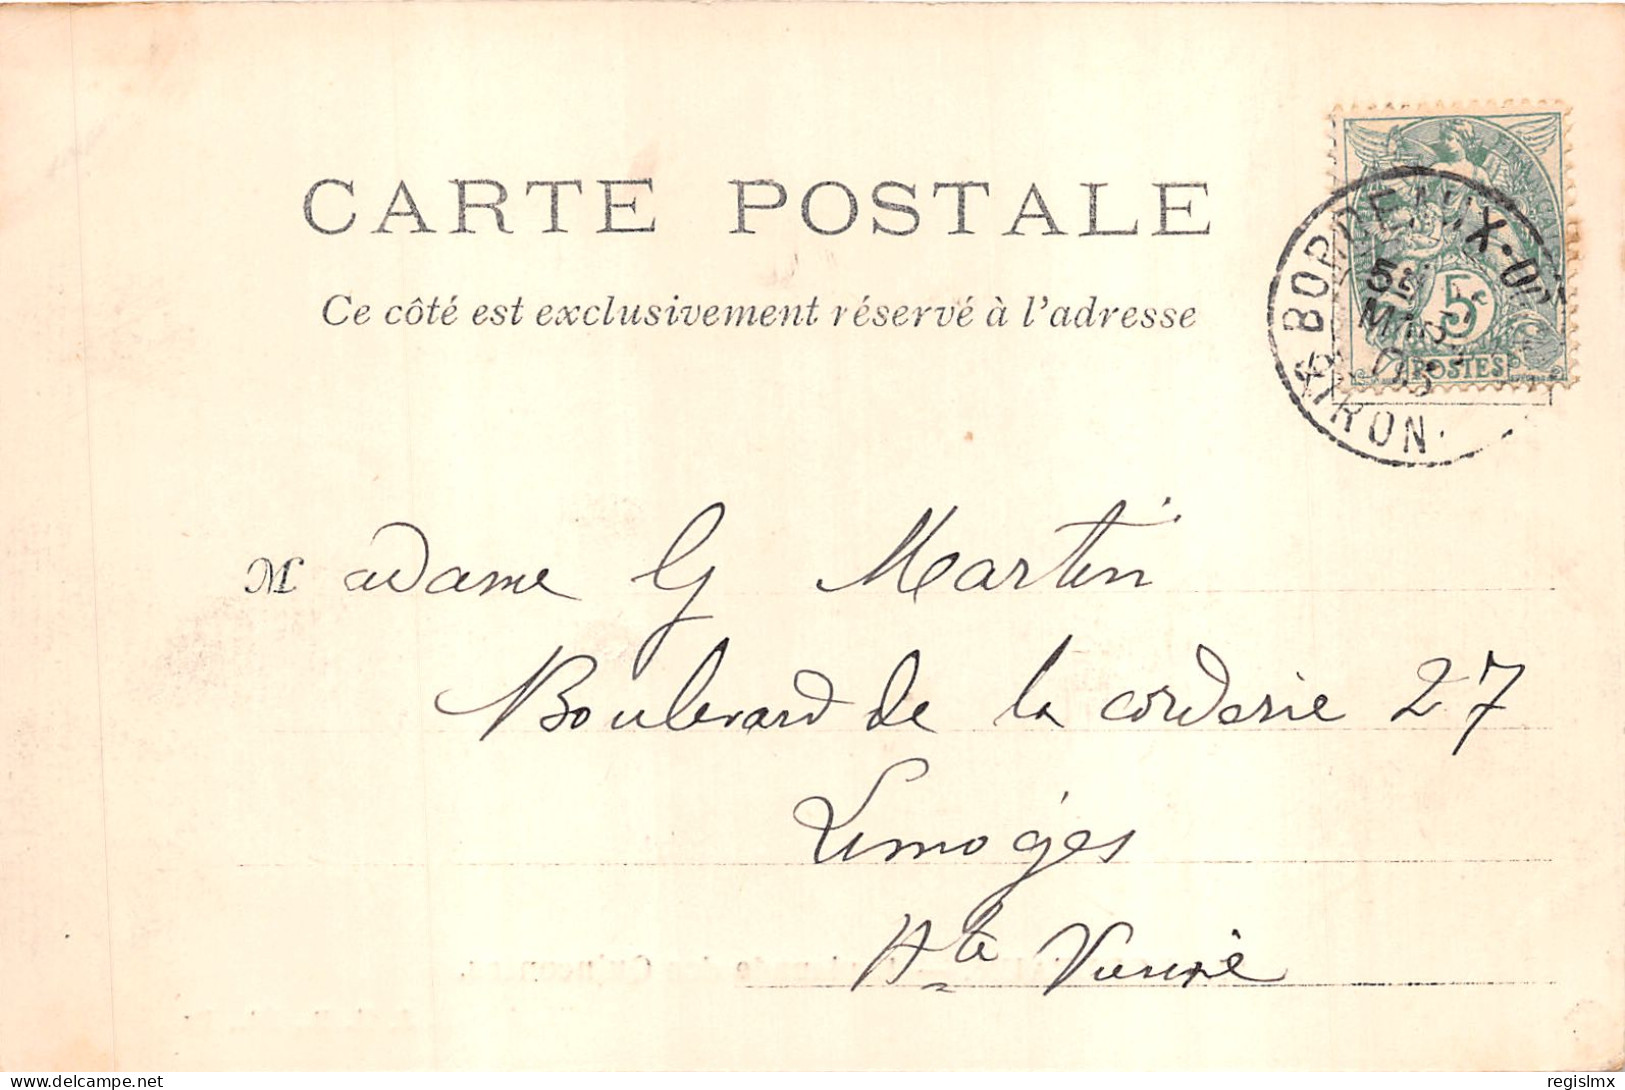 CARTE POSTALE
Ce côté est exclusivement réservé à l'adresse
BORDEAUX
5E
MARS
05
GIRONDE
5c
POSTES
Madame G Martin
Boulevard de la corderie 27
Limoges
Hte Vienne
des Quinconces.
delcampe.net
regislmx